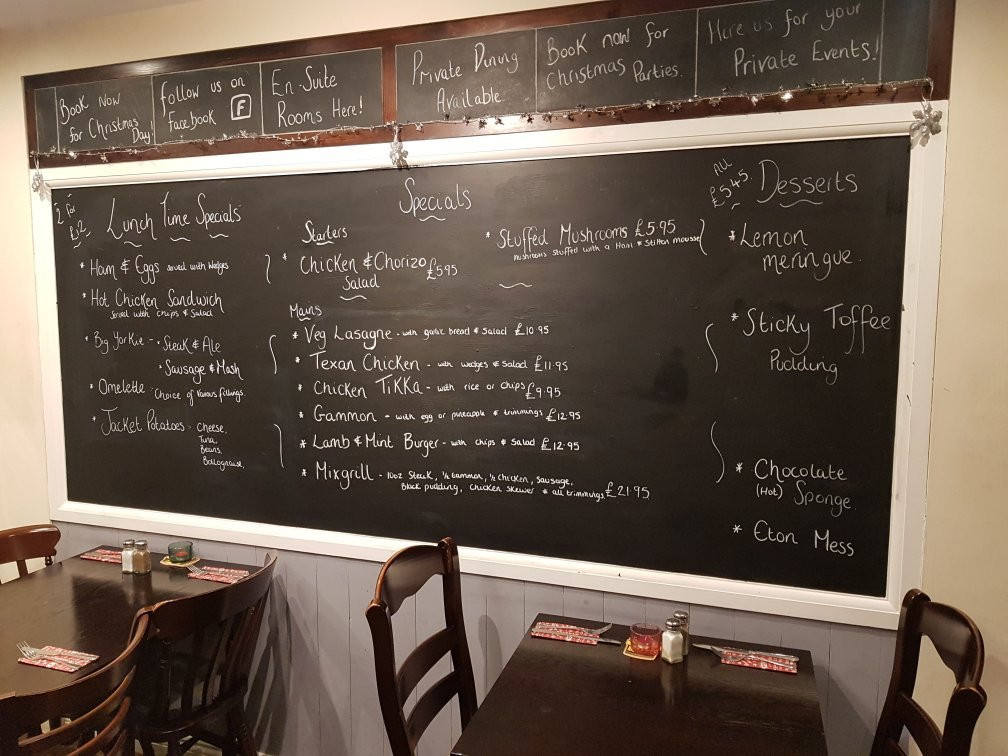 Book Now
for Christmas
Day!
follow us on
Facebook f
En-Suite
Rooms Here!
Private Dining
Available
Book now for
Christmas Parties.
Hire us for your
Private Events!
2 for
£12
Lunch Time Specials
* Ham & Eggs served with Wedges
* Hot Chicken Sandwich
Served with chips & Salad
* Big Yorkie - • Steak & Ale
• Sausage & Mash
* Omelette - Choice of various fillings.
* Jacket Potatoes - Cheese,
Tuna,
Beans,
Bollognaise,
Specials
Starters
* Chicken & Chorizo £5.95
Salad
* Stuffed Mushrooms £5.95
mushrooms stuffed with a Ham & Stilton mousse
Mains
* Veg Lasagne - with garlic bread & Salad £10.95
* Texan Chicken - with wedges & Salad £11.95
* Chicken TiKKa - with rice or chips £9.95
* Gammon - with egg or pineapple & trimmings £12.95
* Lamb & Mint Burger - with chips & Salad £12.95
* Mixgrill - 10oz Steak, ½ Gammon, ½ Chicken, Sausage,
Black pudding, Chicken skewer & all trimmings £21.95
All
£5.45.
Desserts
* Lemon
meringue.
* Sticky Toffee
Pudding
* Chocolate
(Hot) Sponge.
* Eton Mess